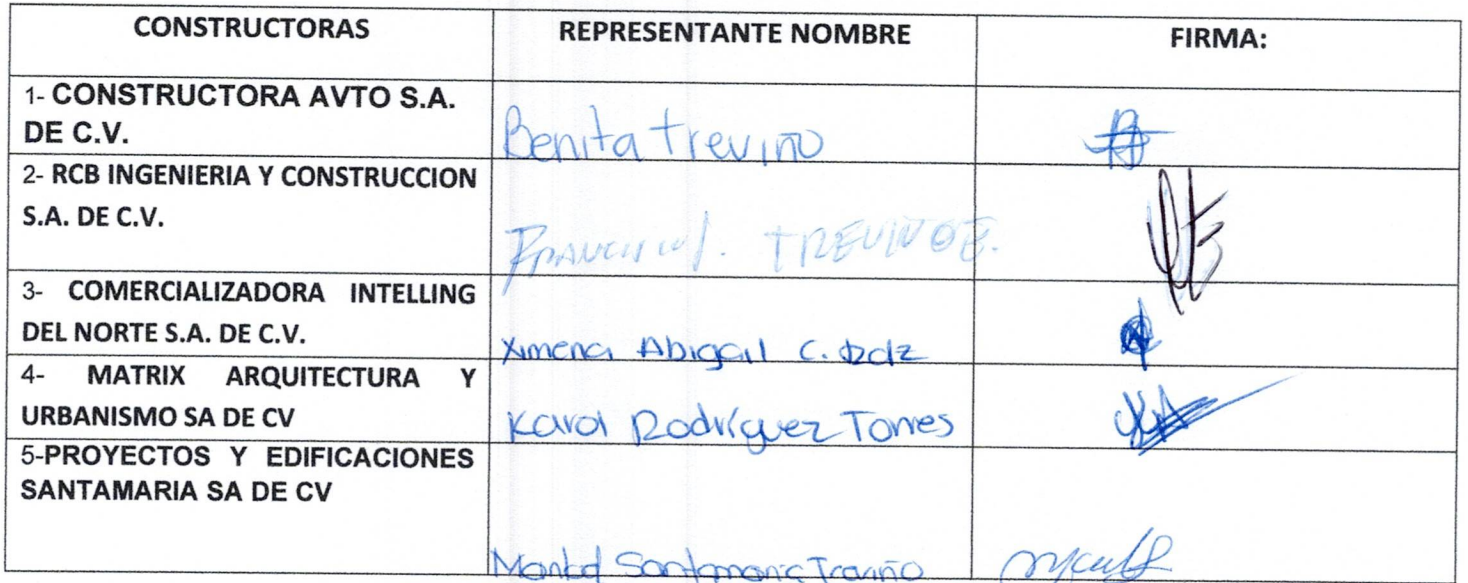 CONSTRUCTORAS REPRESENTANTE NOMBRE FIRMA:
1- CONSTRUCTORA AVTO S.A.
DE C.V. Benita Treviño
2- RCB INGENIERIA Y CONSTRUCCION
S.A. DE C.V.
TREVINO E.
3- COMERCIALIZADORA INTELLING
DEL NORTE S.A. DE C.V. Ximena Abigail C.
4- MATRIX ARQUITECTURA Y
URBANISMO SA DE CV Karol Rodríguez Torres
5-PROYECTOS Y EDIFICACIONES
SANTAMARIA SA DE CV
Santamaria Treviño